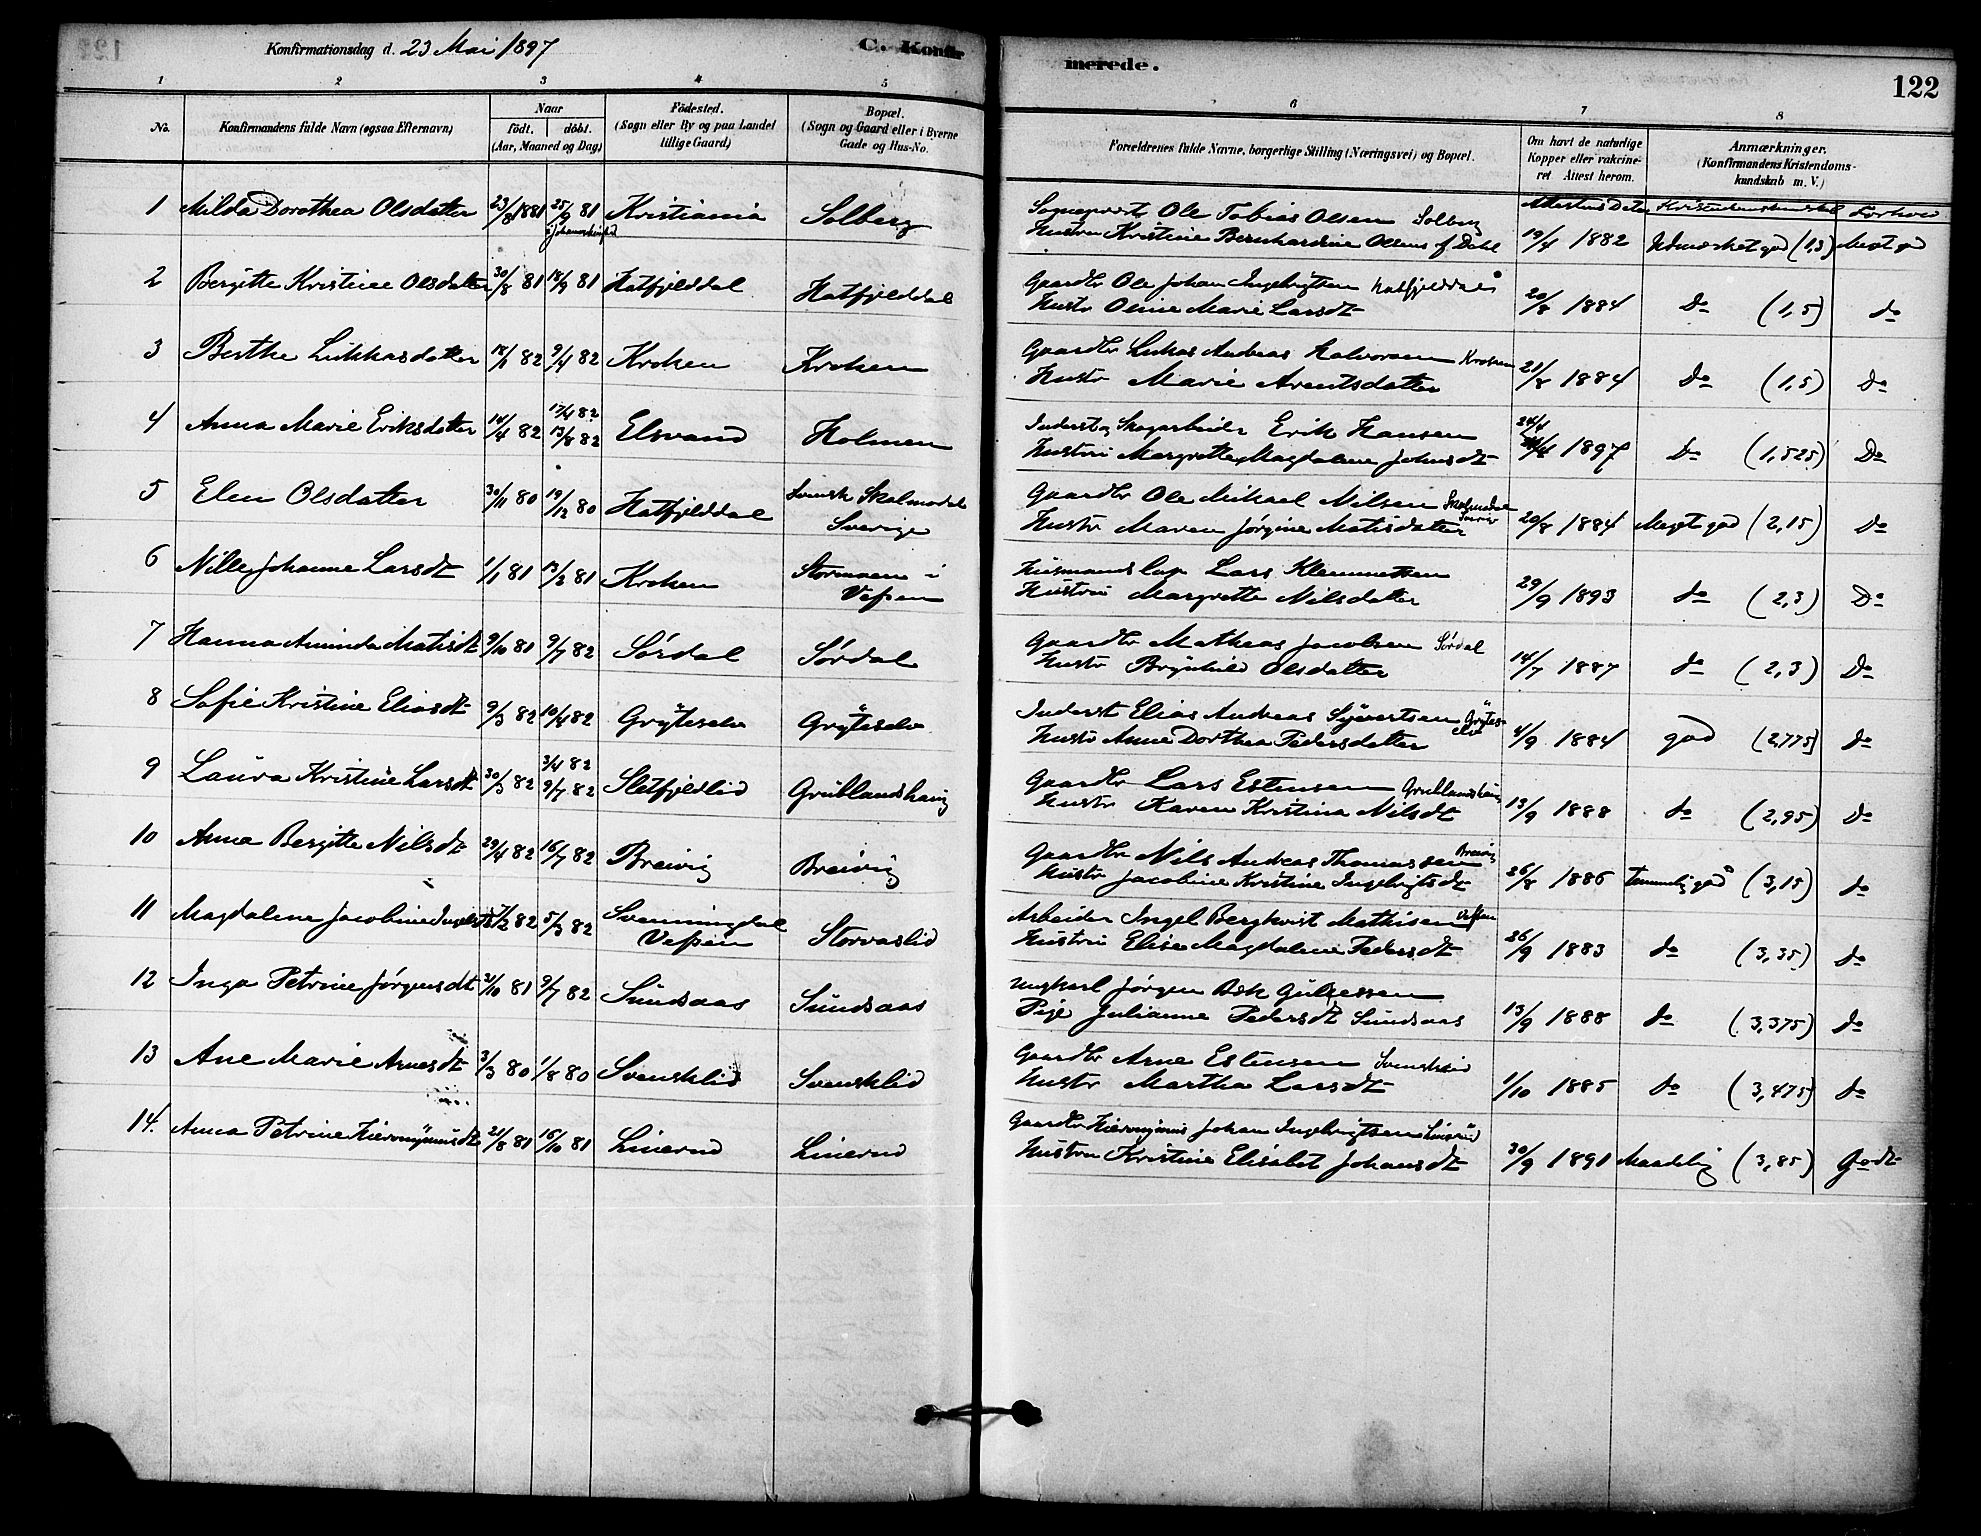 Konfirmationsdag d. 23 Mai 1897
C. Konfirmerede.
122
1 2 3 4 5 6 7 8
No. Konfirmandens fulde Navn (ogsaa Efternavn) Naar födt. döbt. (Aar, Maaned og Dag) Födested. (Sogn eller By og paa Landet tillige Gaard) Bopæl. (Sogn og Gaard eller i Byerne Gade og Hus-No. Forældrenes fulde Navne, borgerlige Stilling (Næringsvei) og Bopæl. Om havt de naturlige Kopper eller vakcineret Attest herom. Anmærkninger. (Konfirmandens Kristendomskundskab m. V.)
Attestens Date Kristendomskundskab Forhold
1 Milda Dorothea Olsdatter 23/8 1881 25/9 81 Kristiania Solberg Sogneprest Ole Tobias Olsen Solberg
Hustru Kristine Bernhardine Olsens f. Dahl 19/4 1882 Udmærket god (1,3) Meget god
2 Bergitte Kristine Olsdatter 30/8 81 18/9 81 Hatfjelddal Hatfjelddal Gaardbr Ole Johan Ingebrigtsen Hatfjelddal
Hustr Oline Marie Larsdt 20/8 1884 Do (1,5) do
3 Berthe Lukkasdatter 18/1 82 9/4 82 Kroken Kroken Gaardbr Lukas Andreas Halvorsen Kroken
Hustr Marie Arentsdatter 21/8 1884 Do (1,5) Do
4 Anna Marie Eriksdatter 14/4 82 17/4 82 13/8 82 Elsvand Holmen Inderst og Skogarbeider Erik Hansen
Hustru Margrethe Magdalene Johnsdt 24/4 1897 Do (1,525) Do
5 Elen Olsdatter 30/11 80 19/12 80 Hatfjelddal Svensk Skalmodal Sverige Gaardbr Ole Mikael Nilsen Skalmodal Sverig
Hustr Maren Jørgine Matisdatter 20/8 1884 Meget god (2,15) Do
6 Nille Johanne Larsdt 1/1 81 13/2 81 Kroken Stormoen i Vefsen Husmand Lap Lars Klemmetsen
Hustru Margrette Nilsdatter 29/9 1893 do (2,3) Do
7 Hanna Aminda Matisdt 9/10 81 9/7 82 Sørdal Sørdal Gaardbr Matheas Jacobsen Sørdal
Hustr Brynhild Olsdatter 14/7 1887 do (2,3) Do
8 Sofie Kristine Eliasdt 9/3 82 10/4 82 Grÿteselv Grÿteselv Inderst Elias Andreas Syvertsen Grÿteselv
Hustr Anne Dorthea Pedersdatter 4/9 1884 god (2,775) do
9 Laura Kristine Larsdt 30/3 82 3/4 82 9/7 82 Sletfjeldlid Grublandshaug Gaardbr Lars Estensen Grublandshaug
Hustr Karen Kristina Nilsdt 13/9 1888 do (2,95) Do
10 Anna Bergitte Nilsdt 29/4 82 16/7 82 Breivig Breivig Gaardbr Nils Andreas Thomassen Breivig
Hustr Jacobine Kristine Ingebrigtsdt 26/8 1886 Temmelig god (3,15) do
11 Magdalene Jacobine Ingelsdt 7/2 82 5/3 82 Svenningdal Vefsen Storvaslid Arbeider Ingel Bergkvist Mathisen Vefsen
Hustru Elise Magdalene Pedersdt 26/9 1883 do (3,35) do
12 Inga Petrine Jørgensdt 31/10 81 9/7 82 Sundsaas Sundsaas Ungkarl Jørgen Ask
Pige Julianne Pedersdt Sundsaas 13/9 1888 do (3,375) do
13 Ane Marie Arnesdt 3/3 80 1/8 80 Svensklid Svensklid Gaardbr Arne Estensen Svensklid
Hustr Martha Larsdt 1/10 1885 do (3,475) do
14. Anna Petrine Hieronÿmusdt 21/8 81 16/10 81 Linerud Linerud Gaardbr Hieronymus Johan Ingebrigtsen Linerud
Hustru Kristine Elisabet Johansdt 30/9 1891 Maadelig (3,85) Godt